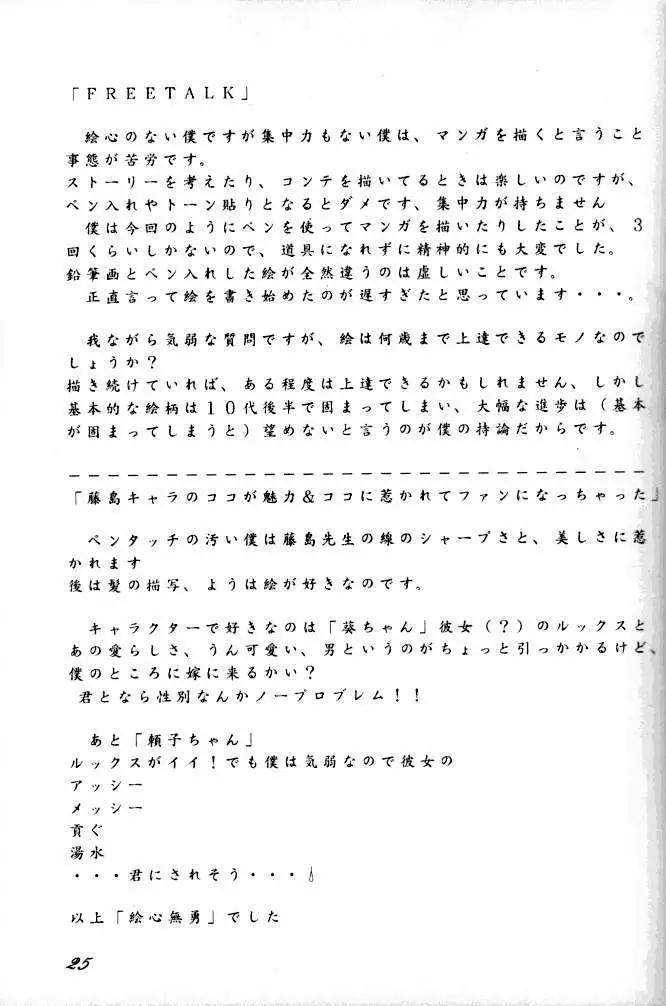 「ＦＲＥＥＴＡＬＫ」
絵心のない僕ですが集中力もない僕は、マンガを描くと言うこと
事態が苦労です。
ストーリーを考えたり、コンテを描いてるときは楽しいのですが、
ペン入れやトーン貼りとなるとダメです、集中力が持ちません
僕は今回のようにペンを使ってマンガを描いたりしたことが、３
回くらいしかないので、道具になれずに精神的にも大変でした。
鉛筆画とペン入れした絵が全然違うのは虚しいことです。
正直言って絵を書き始めたのが遅すぎたと思っています・・・。
我ながら気弱な質問ですが、絵は何歳まで上達できるモノなので
しょうか？
描き続けていれば、ある程度は上達できるかもしれません、しかし
基本的な絵柄は１０代後半で固まってしまい、大幅な進歩は（基本
が固まってしまうと）望めないと言うのが僕の持論だからです。
「藤島キャラのココが魅力＆ココに惹かれてファンになっちゃった」
ペンタッチの汚い僕は藤島先生の線のシャープさと、美しさに惹
かれます
後は髪の描写、ようは絵が好きなのです。
キャラクターで好きなのは「葵ちゃん」彼女（？）のルックスと
あの愛らしさ、うん可愛い、男というのがちょっと引っかかるけど、
僕のところに嫁に来るかい？
君となら性別なんかノープロブレム！！
あと「頼子ちゃん」
ルックスがイイ！でも僕は気弱なので彼女の
アッシー
メッシー
貢ぐ
湯水
・・・君にされそう・・・
以上「絵心無勇」でした
25